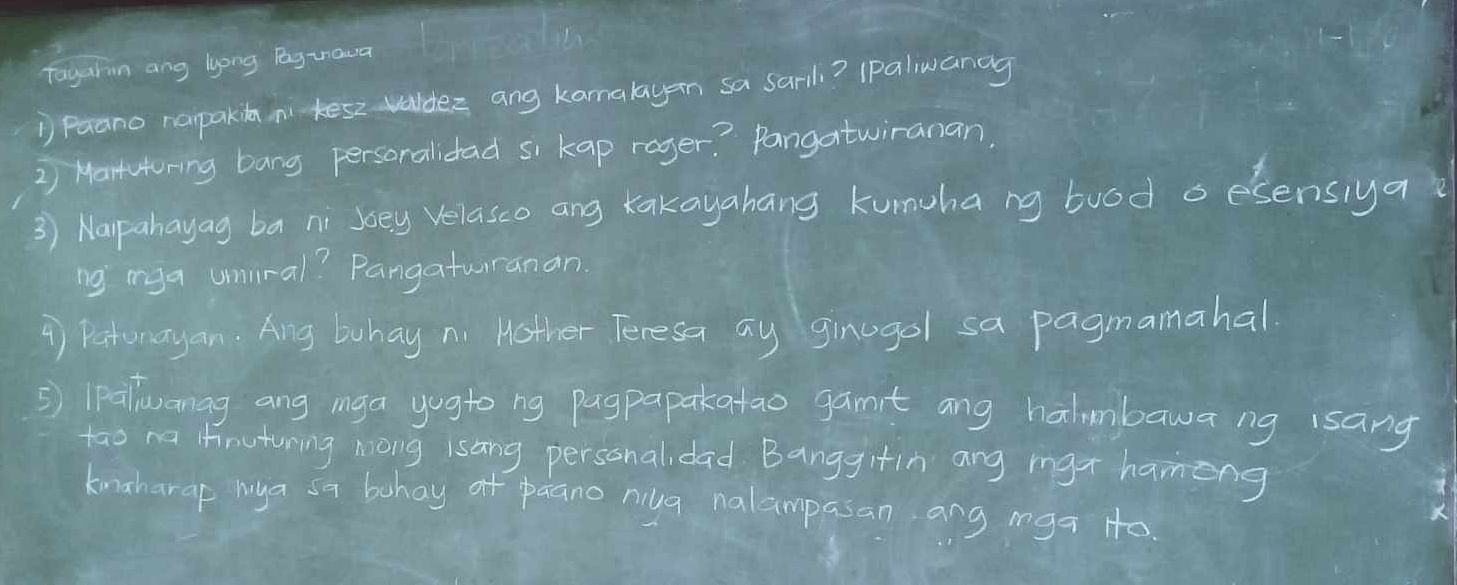 Tayahin ang Iyong Pag-unawa
1) Paano naipakita ni Kesz Valdez ang kamalayan sa sarili? Ipaliwanag
2) Maituturing bang personalidad si kap roger? Pangatwiranan.
3) Naipahayag ba ni Joey Velasco ang kakayahang kumuha ng buod o esensiya
ng mga umiiral? Pangatwiranan.
4) Patunayan. Ang buhay ni Mother Teresa ay ginugol sa pagmamahal.
5) Ipaliwanag ang mga yugto ng pagpapakatao gamit ang halimbawa ng isang
tao na itinuturing mong isang personalidad. Banggitin ang mga hamong
kinaharap niya sa buhay at paano niya nalampasan ang mga ito.